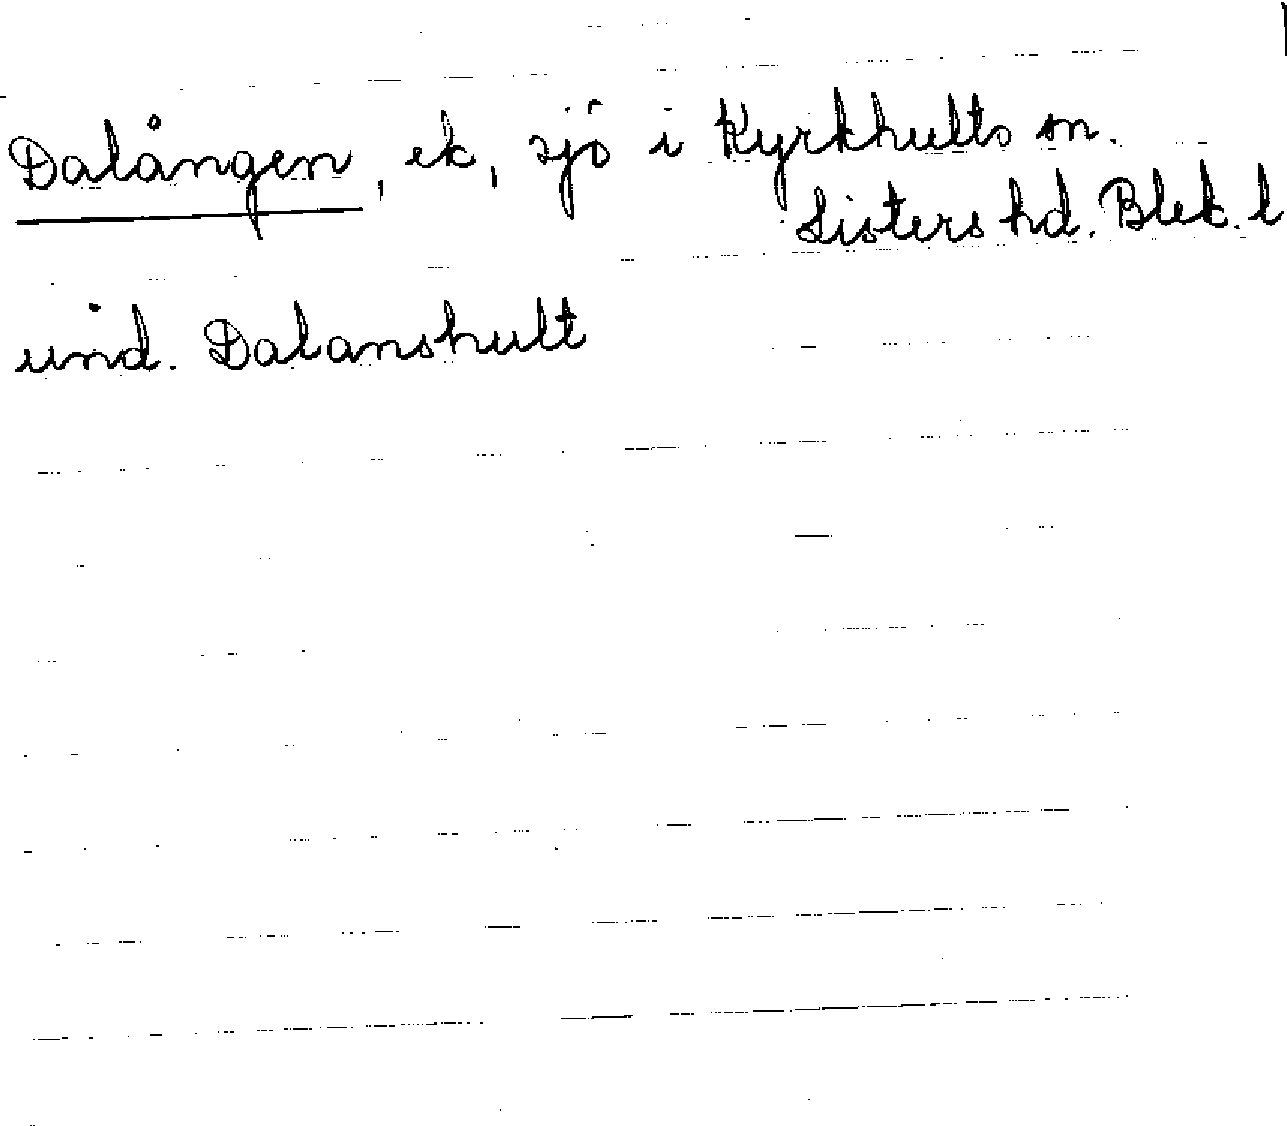 Dalången, ek, sjö i Kyrkhults sn.
Listers hd. Blek. l
und. Dalanshult